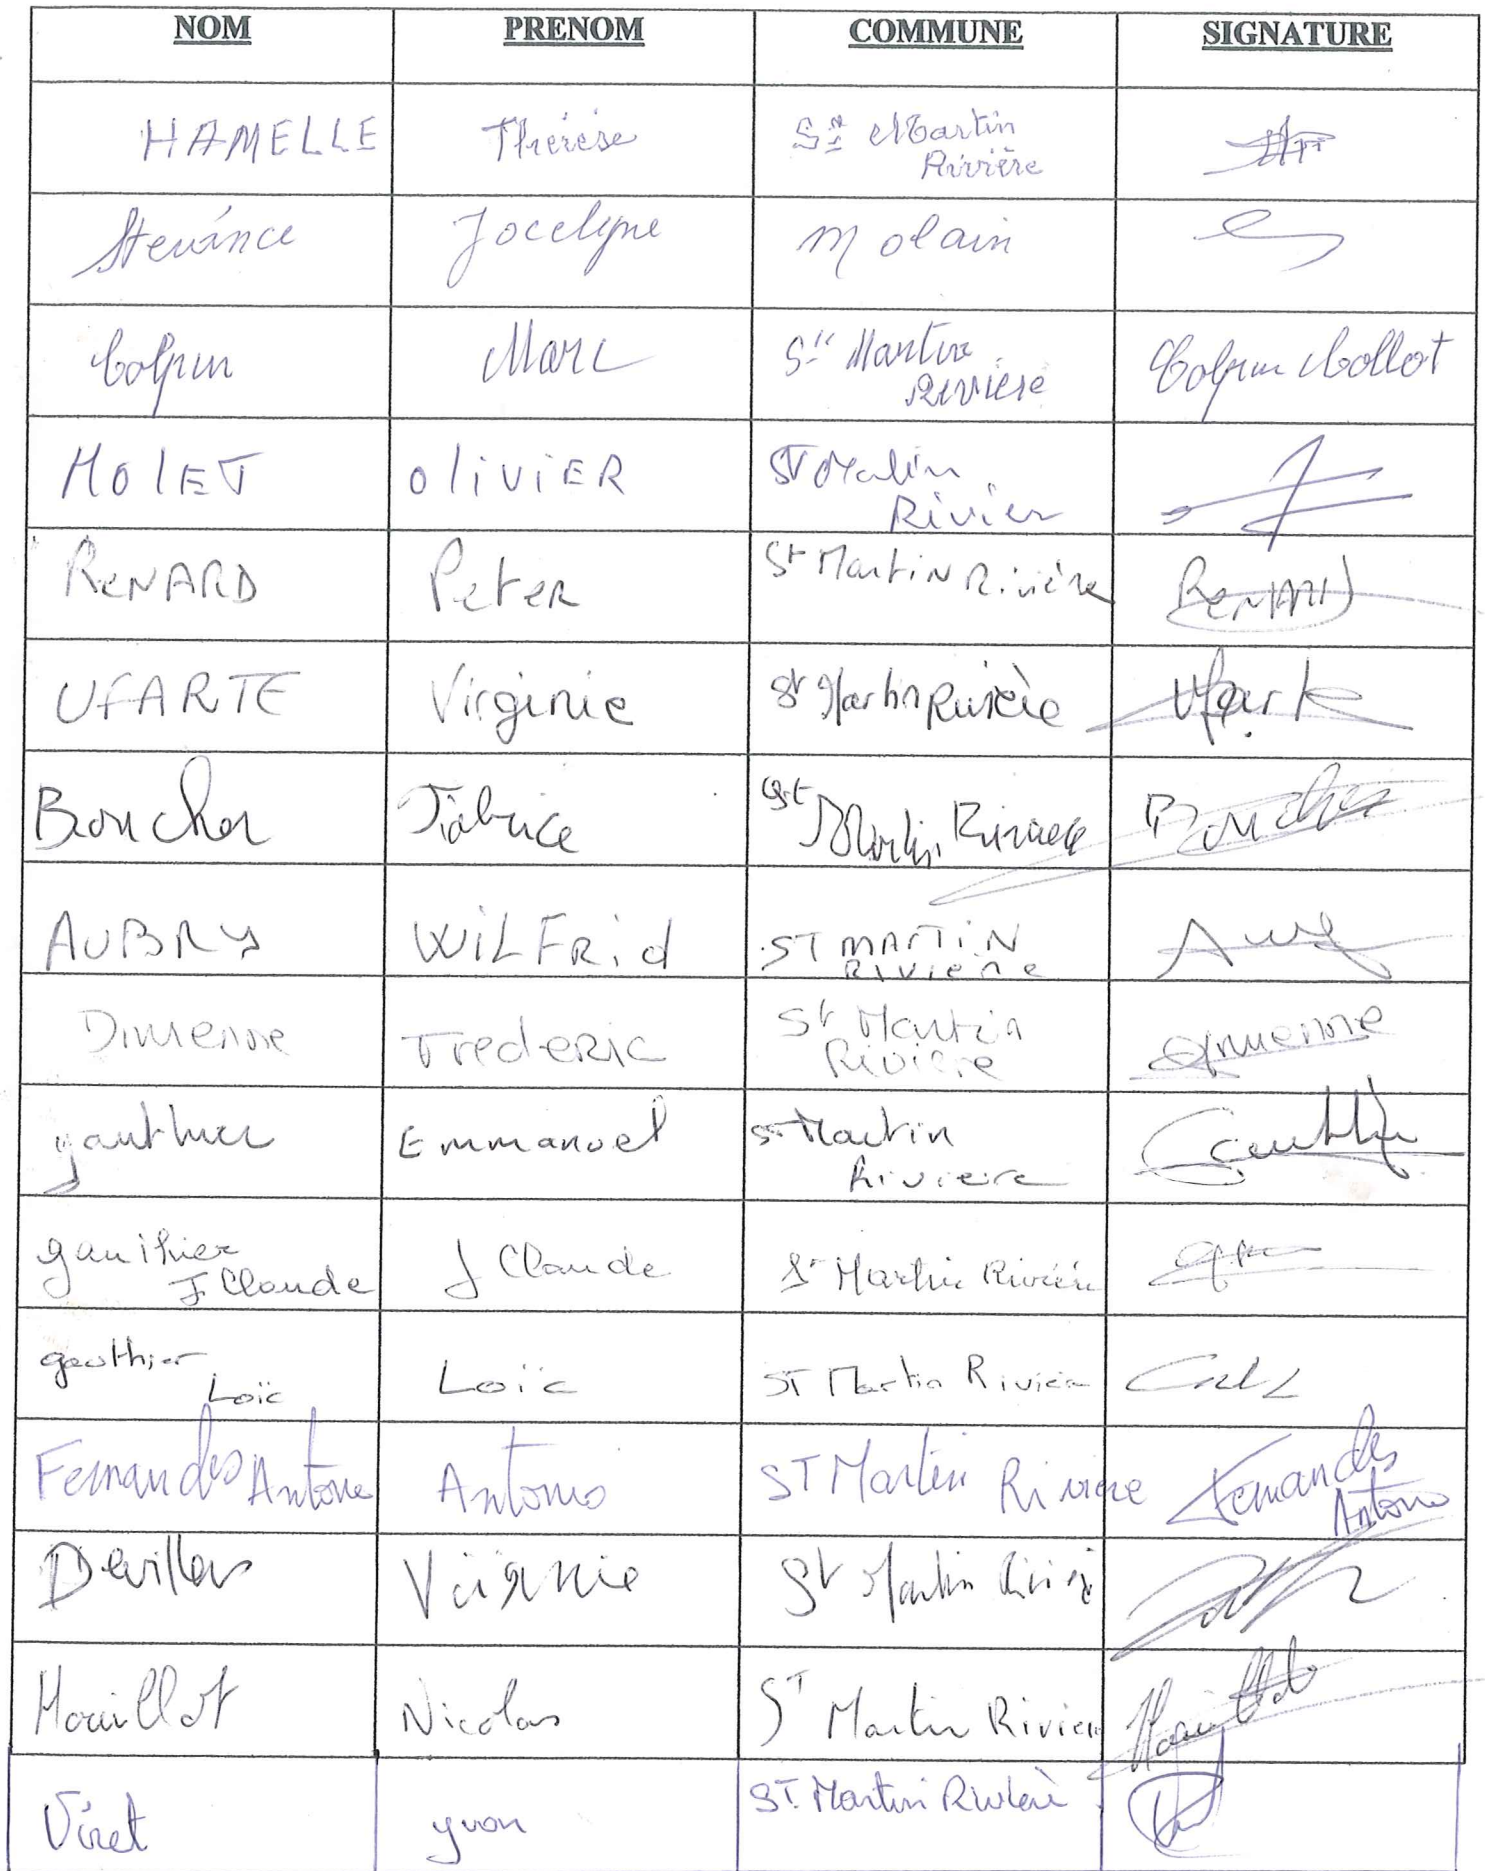 NOM PRENOM COMMUNE SIGNATURE
HAMELLE Thérèse St Martin
Rivière
Jocelyne Molain
Colpin Marc St Martin Colpin Collot
Rivière
MOlET OliViER St Matin
Rivier
RENARD Peter St MartiN Rivière RENARD
UFARTE Virginie St Martin Rivière Ufarte
Boucher Fabrice St Martin Riviere Boucher
AUBRY WiLFRid ST MARTiN
RIVIERE
Dimenne Frederic St Martin Dimenne
Riviere
gauthier Emmanuel St Martin Gauthier
Riviere
gauthier J Claude St Martin Rivière
J Claude
gauthier Loïc ST Martin Rivière
Loïc
Fernandes Antonio Antonio ST Martin Riviere Fernandes
Antonio
Devillers Virginie St Martin Rivi
Mouillot Nicolas ST Martin Riviere Mouillot
Viret yvon ST. Martin Rivière